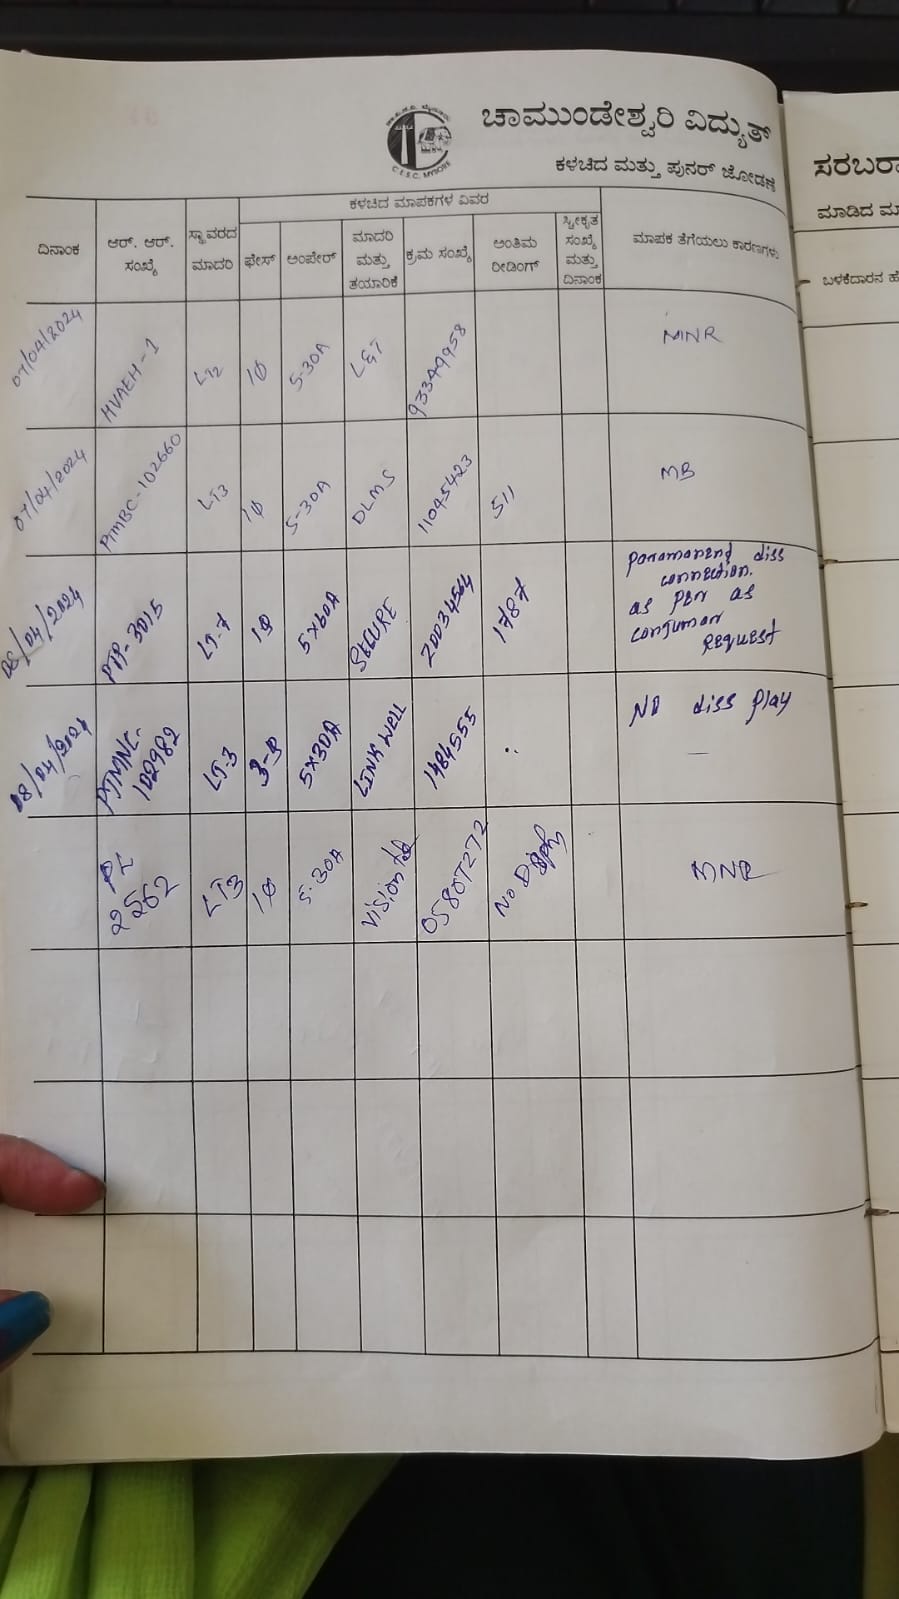 ಚಾಮುಂಡೇಶ್ವರಿ ವಿದ್ಯುತ್
C.E.S.C. MYSORE
ಕಳಚಿದ ಮತ್ತು ಪುನರ್ ಜೋಡಣೆ
ಸರಬರಾ
ಮಾಡಿದ ಮಾ
ಬಳಕೆದಾರನ ಹೆ
ಕಳಚಿದ ಮಾಪಕಗಳ ವಿವರ
ದಿನಾಂಕ
ಆರ್. ಆರ್. ಸಂಖ್ಯೆ
ಸ್ಥಾವರದ ಮಾದರಿ
ಫೇಸ್
ಅಂಪೇರ್
ಮಾದರಿ ಮತ್ತು ತಯಾರಿಕೆ
ಕ್ರಮ ಸಂಖ್ಯೆ
ಅಂತಿಮ ರೀಡಿಂಗ್
ಸ್ವೀಕೃತ ಸಂಖ್ಯೆ ಮತ್ತು ದಿನಾಂಕ
ಮಾಪಕ ತೆಗೆಯಲು ಕಾರಣಗಳು
07/04/2024 HVAEH-1 LT2 1Φ 5-30A L&T 93349958 MNR
07/04/2024 LT3 1Φ 5-30A DLMS 11045423 511 MB
08/04/2024 PTP-3015 LT-7 1Φ 5x60A SECURE 20034564 1787
Paramanend diss
connection.
as per as
consumar
REQUEST
08/04/2024 102982 LT-3 3-Φ 5x30A LINK WELL 1484555 NO diss play
2562 LT3 1Φ 5-30A Vision 05807272 No Disply MNR